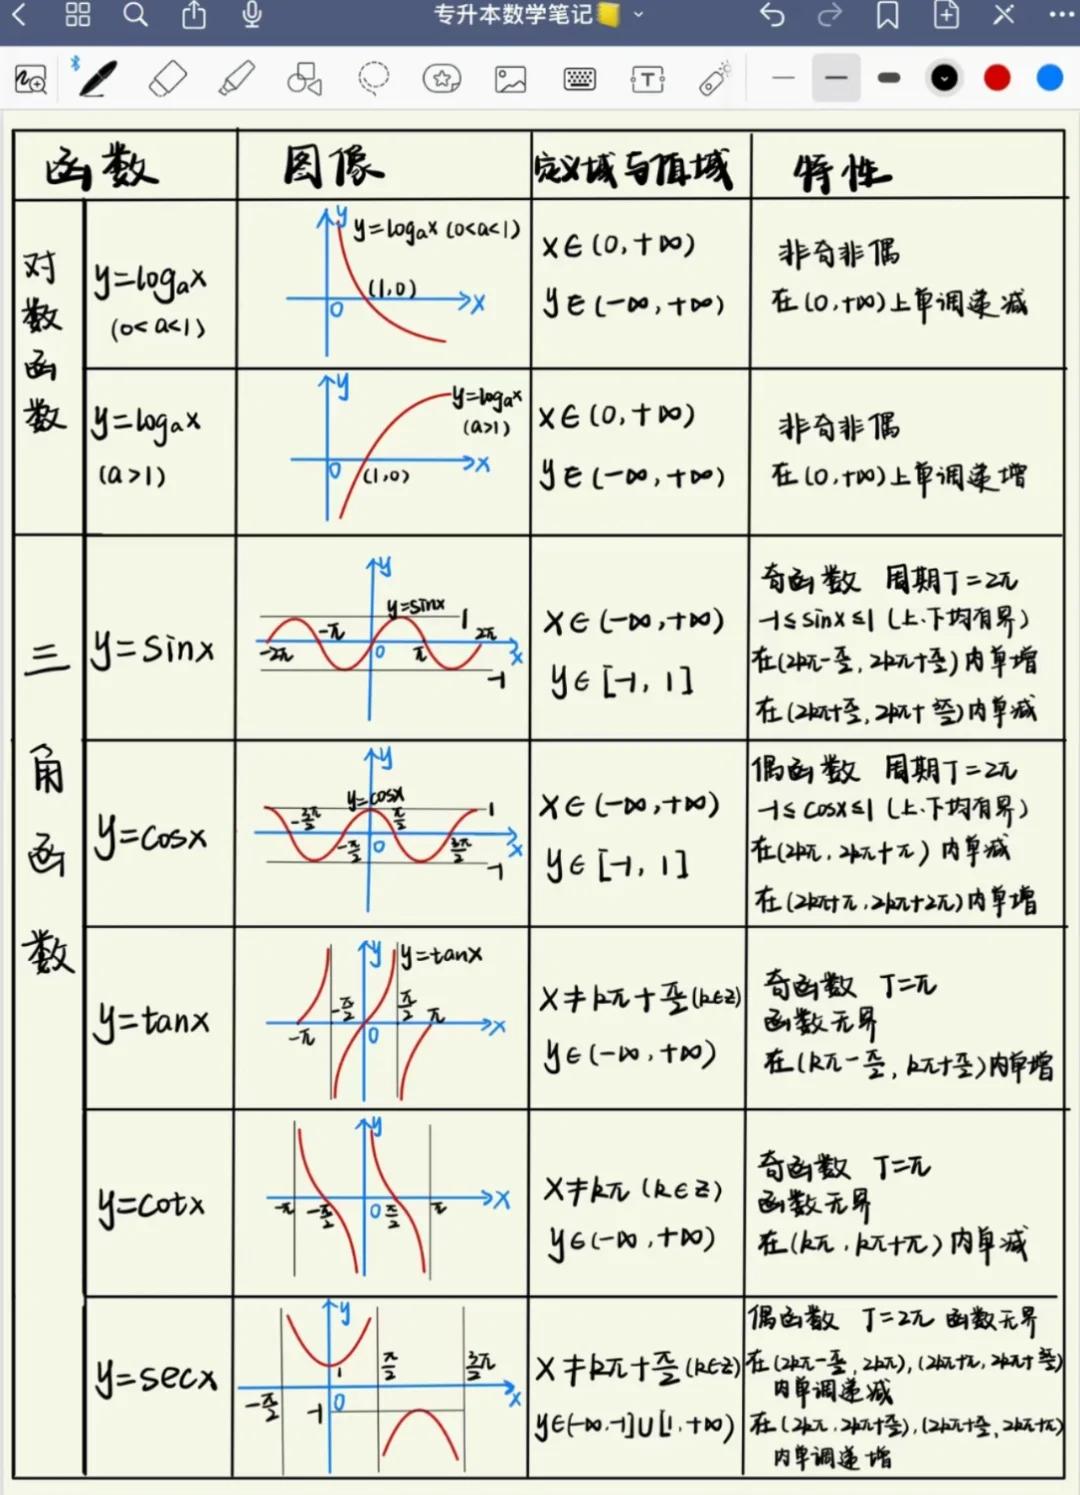 专升本数学笔记
函数 图像 定义域与值域 特性
对数函数
y=logₐx
(0<a<1)
y
y=logₐx (0<a<1)
(1,0)
0
x
x∈(0,+∞)
y∈(-∞,+∞)
非奇非偶
在(0,+∞)上单调递减
y=logₐx
(a>1)
y
y=logₐx
(a>1)
0
(1,0)
x
x∈(0,+∞)
y∈(-∞,+∞)
非奇非偶
在(0,+∞)上单调递增
三角函数
y=sinx
y
y=sinx
1
-π
2π
-2π
0
π
x
-1
x∈(-∞,+∞)
y∈[-1,1]
奇函数 周期T=2π
-1≤sinx≤1(上.下均有界)
在(2kπ-π/2,2kπ+π/2)内单增
在(2kπ+π/2,2kπ+3π/2)内单减
y=cosx
y
y=cosx
1
-3π/2
π/2
-π/2
0
3π/2
x
-1
x∈(-∞,+∞)
y∈[-1,1]
偶函数 周期T=2π
-1≤cosx≤1(上.下均有界)
在(2kπ,2kπ+π)内单减
在(2kπ+π,2kπ+2π)内单增
y=tanx
y
y=tanx
-π/2
π/2
π
-π
0
x
x≠kπ+π/2(k∈z)
y∈(-∞,+∞)
奇函数 T=π
函数无界
在(kπ-π/2,kπ+π/2)内单增
y=cotx
y
-π
-π/2
0
π/2
π
x
x≠kπ(k∈z)
y∈(-∞,+∞)
奇函数 T=π
函数无界
在(kπ,kπ+π)内单减
y=secx
y
1
π/2
3π/2
-π/2
-1
0
x
x≠kπ+π/2(k∈z)
y∈(-∞,-1]∪[1,+∞)
偶函数 T=2π 函数无界
在(2kπ-π/2,2kπ),(2kπ+π,2kπ+3π/2)
内单调递减
在(2kπ,2kπ+π/2),(2kπ+π/2,2kπ+π)
内单调递增